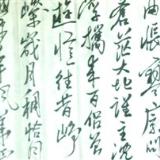 由悵寥廓問
蒼茫大地誰主沉
浮攜來百侶曾
遊憶往昔崢
嶸歲月稠恰同